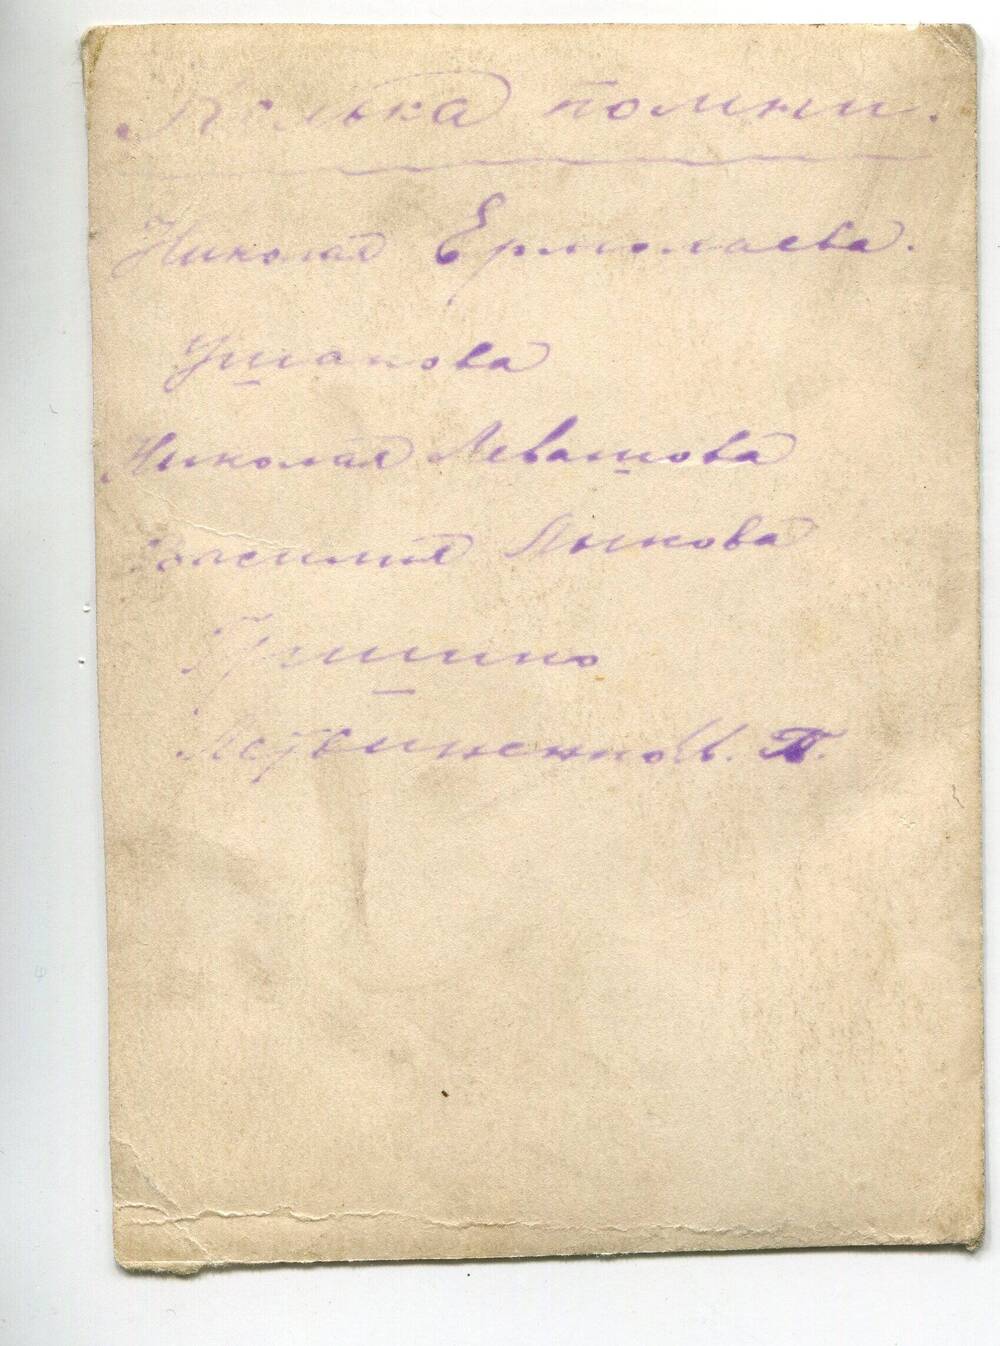 Колька помни.
Николая Ермолаева.
Ушакова
Николая Левашова
Василия Лыкова
Гришино
И. П.